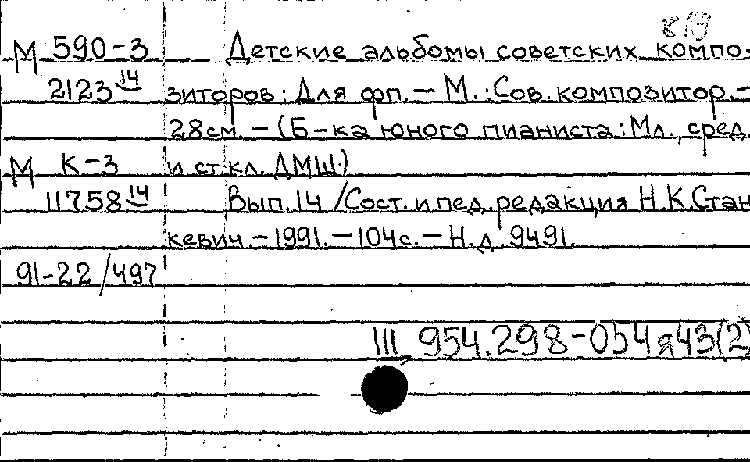 М 590-3 Детские альбомы советских компо-
2123 14 зиторов: Для фп. – М.: Сов. композитор. –
28см. – (Б-ка юного пианиста: Мл., сред.
М К-3 и ст. кл. ДМШ.)
11758 14 Вып. 14 / Сост. и пед. редакция Н.К. Стан
кевич. – 1991. – 104с. – Н.д. 9491.
91-22/497
III 954.298-054я43(2)